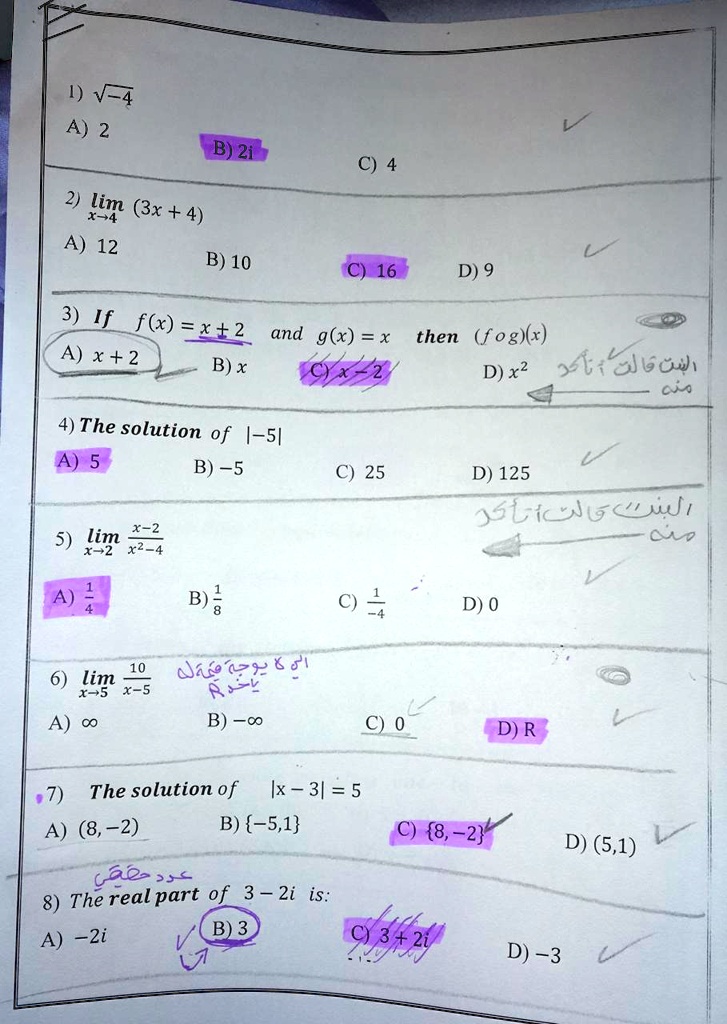 1) √−4
A) 2 B) 2i C) 4
2) lim x→4 (3x + 4)
A) 12 B) 10 C) 16 D) 9
3) If f(x) = x + 2 and g(x) = x then (f o g)(x)
A) x + 2 B) x C) x − 2 D) x²
البنت قالت أتأكد
منه
4) The solution of |−5|
A) 5 B) −5 C) 25 D) 125
البنت قالت أتأكد
منه
5) lim x→2 x−2 / x²−4
A) 1/4 B) 1/8 C) 1/−4 D) 0
الي لا يوجد قيمة له
ياخذ R
6) lim x→5 10 / x−5
A) ∞ B) −∞ C) 0 D) R
7) The solution of |x − 3| = 5
A) (8, −2) B) {−5,1} C) {8, −2} D) (5,1)
عدد حقيقي
8) The real part of 3 − 2i is:
A) −2i B) 3 C) 3 + 2i D) −3